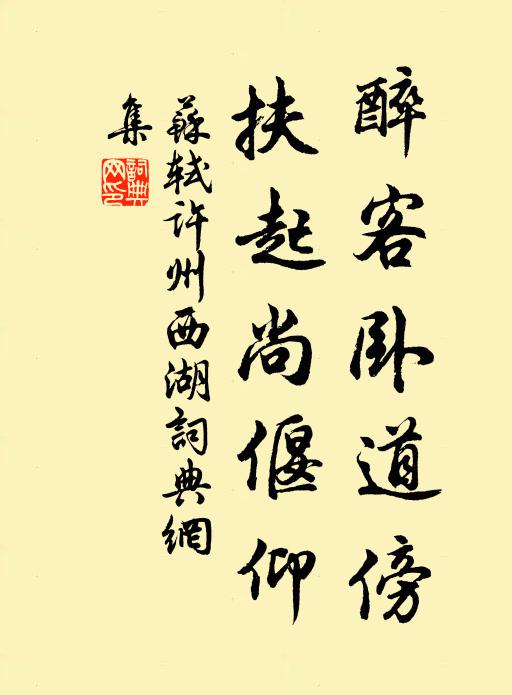 醉客卧道傍
扶起尚偃仰
蘇軾許州西湖詞典網
集
詞典
网印